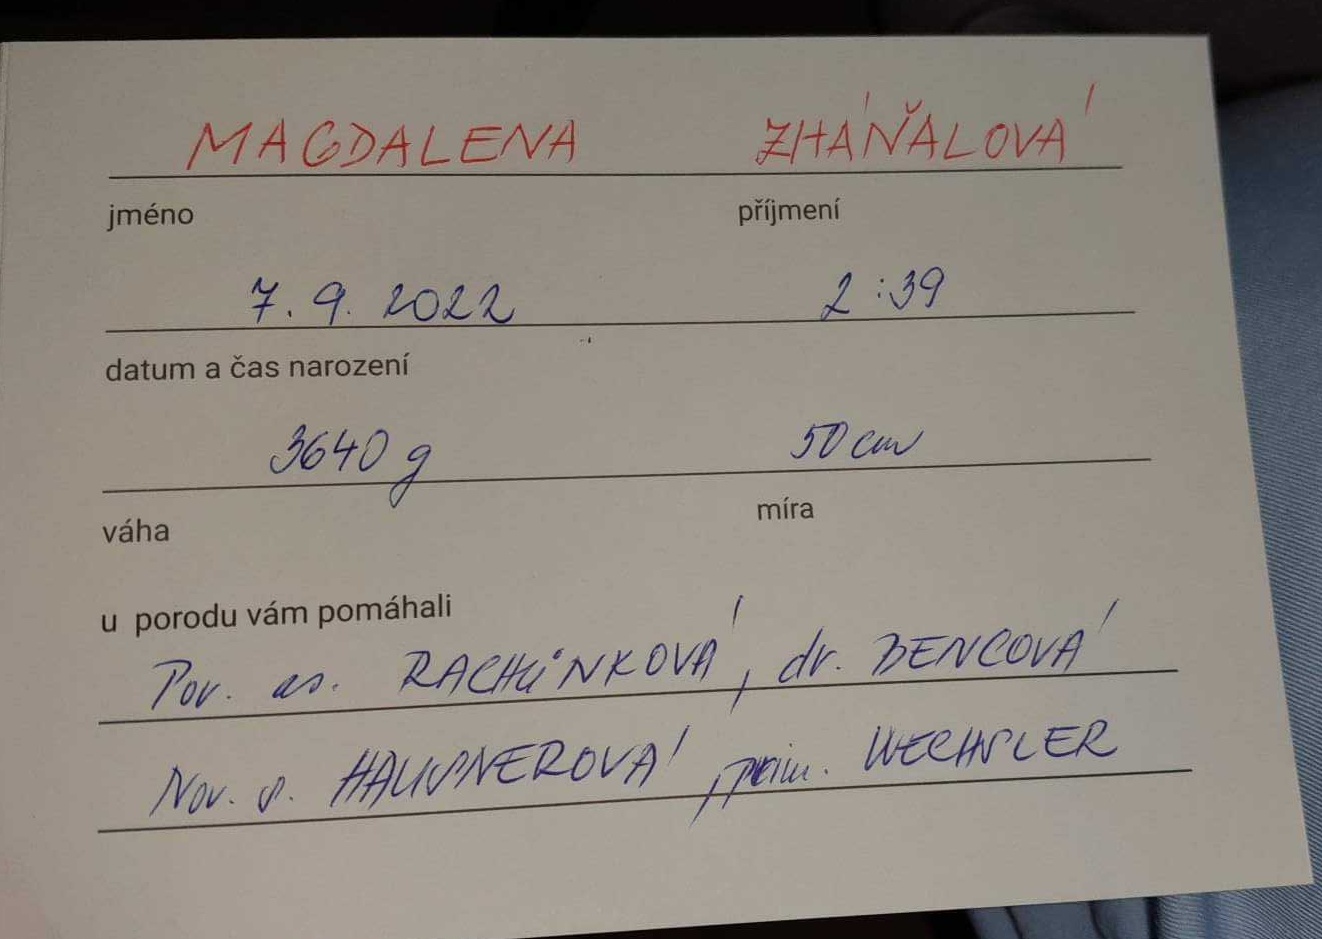 MAGDALENA ZHÁŇALOVÁ
jméno příjmení
7. 9. 2022 2:39
datum a čas narození
3640 g 50 cm
váha míra
u porodu vám pomáhali
Por. as. RACHŮNKOVÁ, dr. BENCOVÁ
Nov. s. HAUSNEROVÁ, prim. WECHSLER